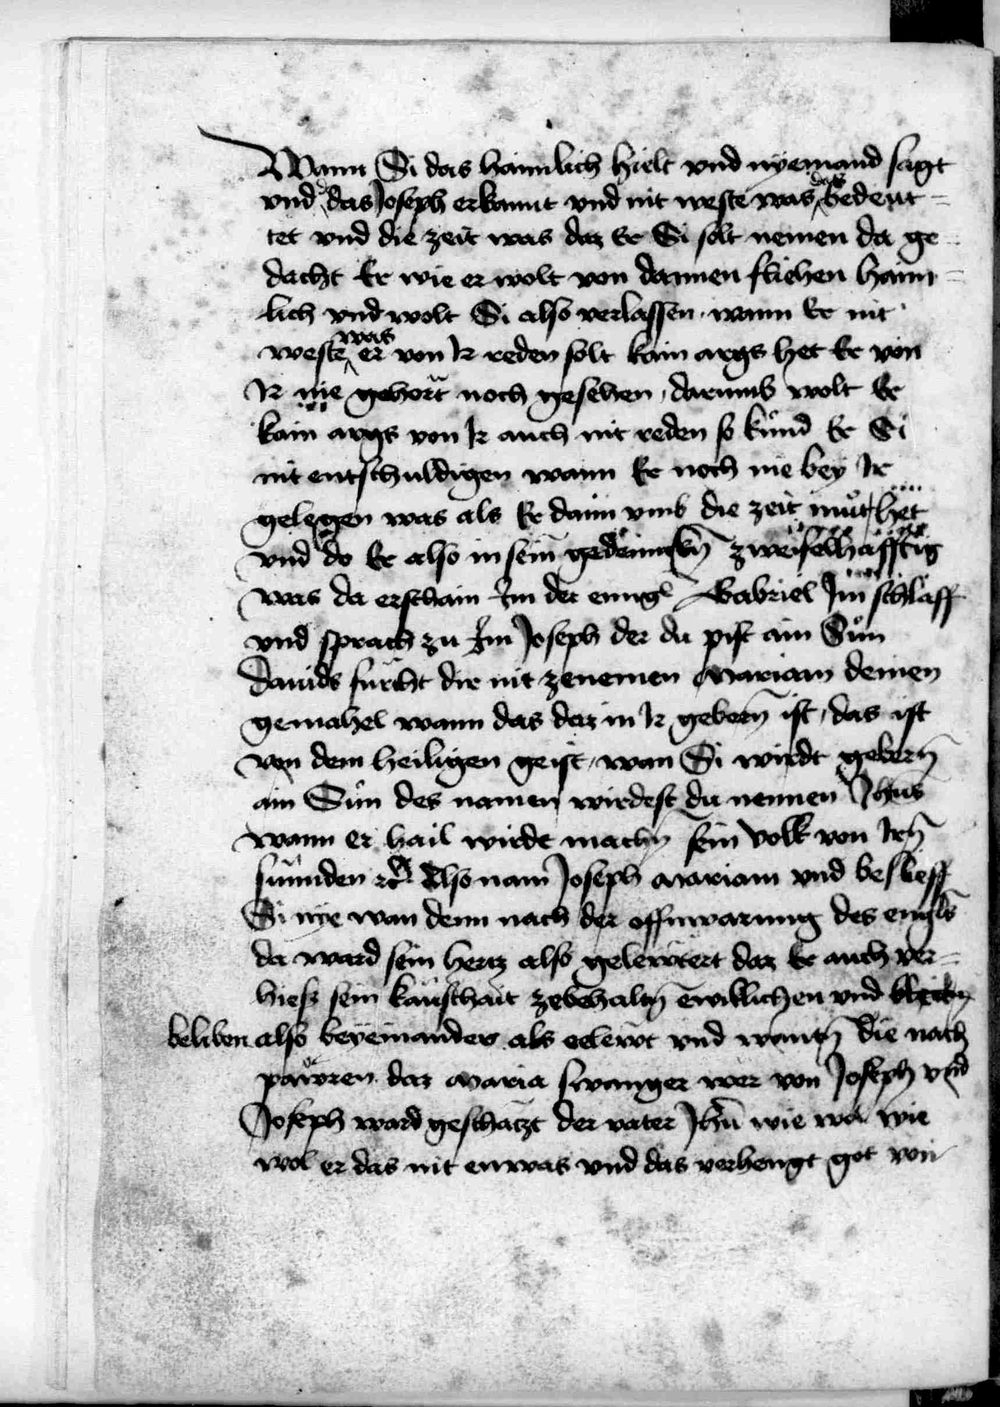 Wann Si das haimlich hielt vnd nyemand sagt
vnd do das Joseph erkannt vnd nit weste was das bedeut-
tet vnd die zeit was daz Er Si solt nemen da ge-
dacht Er wie er wolt von dannen fliehen haim-
lich vnd wolt Si also verlassen. wann Er nit
weste was er von Ir reden solt kain args het Er von
Ir nie gehört noch gesehen, darumb wolt Er
kain args von Ir auch nit reden so kund Er Si
nit entschuldigen wann Er noch nie bey Ir
gelegen was als Er dann vmb die zeit müt het
vnd do Er also in sein zweifelhafftig
was da erschain Im der enngl Gabriel Im schlaff
vnd sprach zu Im Joseph der du pist ain Sun
Dauids fürcht dir nit zenemen Mariam deinen
gemahel wann das daz in Ir geberñ ist, das ist
von dem heiligen geist, wan Si wirdt geberñ
ain Sun des namen wirdest du nennen Jhus
wann er hail wirdt machñ sein volk von Irñ
sunnden Also nam Joseph Mariam vnd beslieff
Si nye wan denn nach der offnwarung des engls
da ward sein hertz also gelewtert daz Er auch ver-
hiess sein kauschait zebehaltñ ewiklichen vnd
beliben also beyeinander als eelewt vnd wantñ die nach
pawren daz Maria swanger wer von Joseph vnd
Joseph ward geschatzt der vater Jhu wie wie
wol er das nit enwas vnd das verhengt got von